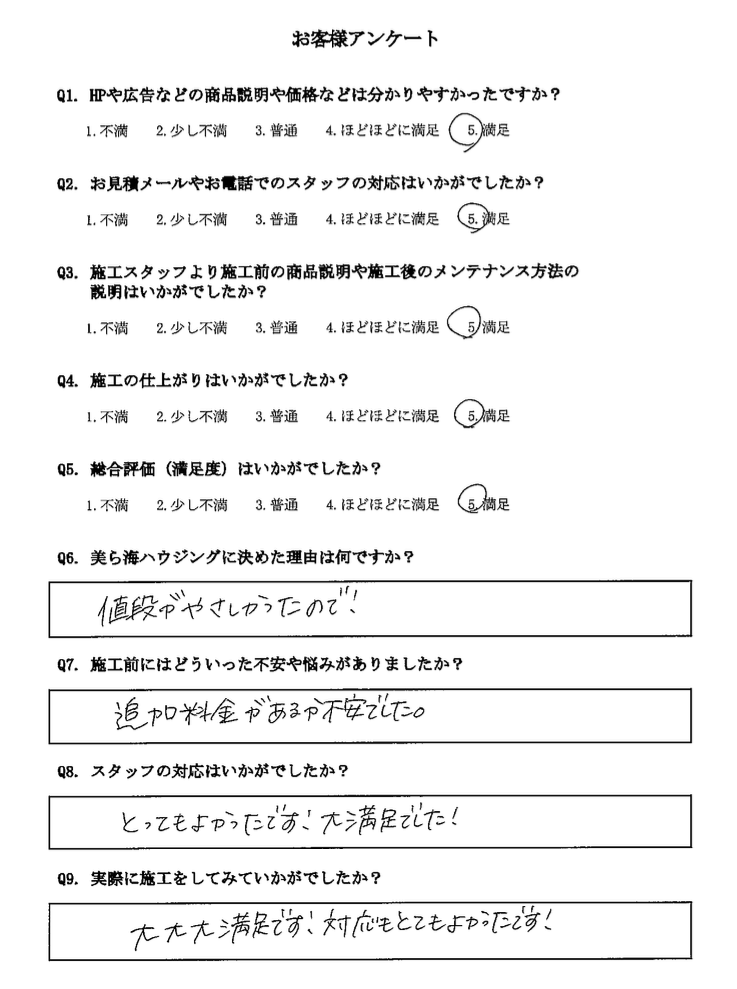 お客様アンケート
Q1. HPや広告などの商品説明や価格などは分かりやすかったですか？
1. 不満 2. 少し不満 3. 普通 4. ほどほどに満足 5. 満足
Q2. お見積メールやお電話でのスタッフの対応はいかがでしたか？
1. 不満 2. 少し不満 3. 普通 4. ほどほどに満足 5. 満足
Q3. 施工スタッフより施工前の商品説明や施工後のメンテナンス方法の
説明はいかがでしたか？
1. 不満 2. 少し不満 3. 普通 4. ほどほどに満足 5 満足
Q4. 施工の仕上がりはいかがでしたか？
1. 不満 2. 少し不満 3. 普通 4. ほどほどに満足 5. 満足
Q5. 総合評価（満足度）はいかがでしたか？
1. 不満 2. 少し不満 3. 普通 4. ほどほどに満足 5. 満足
Q6. 美ら海ハウジングに決めた理由は何ですか？
値段がやさしかったので！
Q7. 施工前にはどういった不安や悩みがありましたか？
追加料金があるか不安でした。
Q8. スタッフの対応はいかがでしたか？
とってもよかったです！大満足でした！
Q9. 実際に施工をしてみていかがでしたか？
大大大満足です！対応もとてもよかったです！